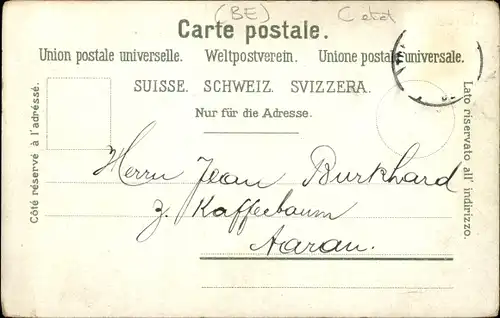 (BE)
Carte postale.
Union postale universelle. Weltpostverein. Unione postale universale.
SUISSE. SCHWEIZ. SVIZZERA.
Nur für die Adresse.
Côté réservé à l'adresse.
Lato riservato all' indirizzo.
Herrn Jean Burkhard
z. Kaffeebaum
Aarau.